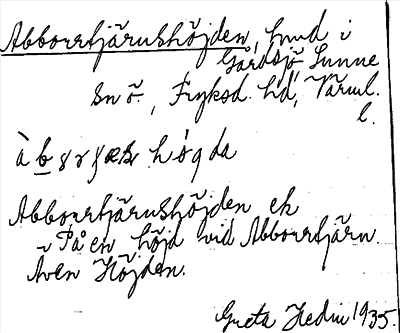 Abborrtjärnshöjden, hmd i
Gårdsjö, Sunne
sn ö., Fryksd. hd, Värml.
l.
högda
Abborrtjärnshöjden ek
På en höjd vid Abborrtjärn.
Även Höjden.
Greta Hedin 1935.